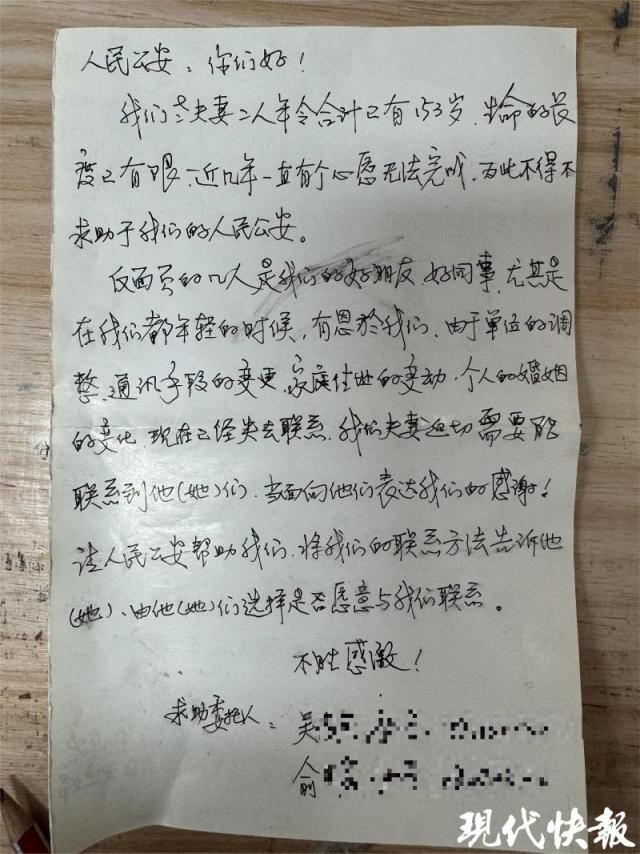 人民公安，你们好！
我们夫妻二人年令合计已有153岁，生命的长
度已有限，近几年一直有个心愿无法完成，为此不得不
求助于我们的人民公安。
反面页的几人是我们的好朋友好同事，尤其是
在我们都年轻的时候，有恩於我们，由于单位的调
整，通讯手段的变更，家庭住址的变动，个人的婚姻
的变化，现在已经失去联系，我们夫妻迫切需要能
联系到他(她)们，当面向他们表达我们的感谢！
请人民公安帮助我们，将我们的联系方法告诉他
(她)，由他(她)们选择是否愿意与我们联系。
不胜感激！
求助委托人：吴
俞
现代快報